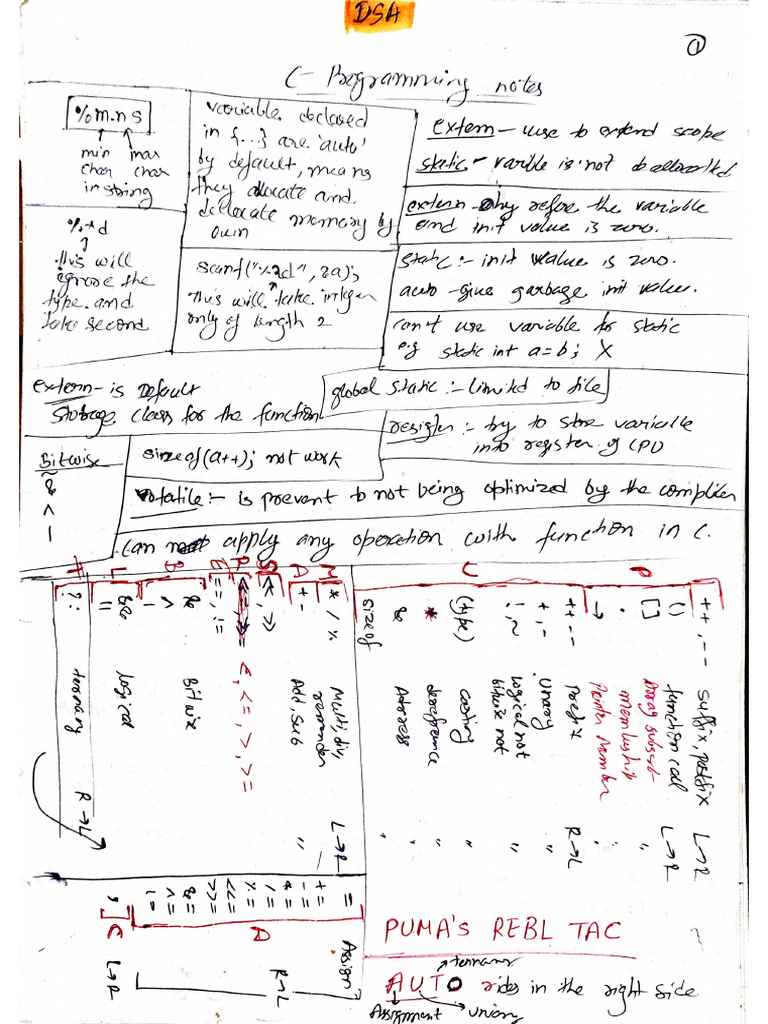 DSA
1
C - Programming notes
%m.n s
min max
char char
in string
variable declared
in {...} are 'auto'
by default, means
they allocate and
dellocate memory by
own
extern - use to extend scope
static - varible is not deallocated
extern - only refere the variable
and init value is zero.
%*d
this will
ignore the
type and
take second
scanf("%2d", &a);
This will take integer
only of length 2
static :- init value is zero.
auto - give garbage init value.
can't use variable for static
e.g static int a=b; X
extern - is Default
storage class for the function
global static :- limited to file
resigter :- try to store variable
into register of CPU
Bitwise
~
&
<
-
sizeof(a++); not work
volatile :- is prevent to not being optimized by the compiler
Can apply any operation with function in C.
P
++, -- suffix, postfix L→R
() function call L→R
[] Array subset "
. membership "
→ Pointer Member "
U
++ -- Prefix R→L
+, - Unary "
!, ~ Logical not bitwise not "
(type) casting "
* dereference "
& Address "
sizeof "
M
* / % Multi, div, remainder L→R
A
+ - Add, Sub "
S
<<, >>
R
<, <=, >, >=
E
==, !=
B
&
^
| Bitwise
L
&&
|| Logical
T
?: ternary R→L
A
= Assign R→L
+=
-=
*=
/=
%=
<<=
>>=
&=
^=
|=
C
, L→R
PUMA'S REBL TAC
ternary
AUTO rides in the right side
Assignment unary